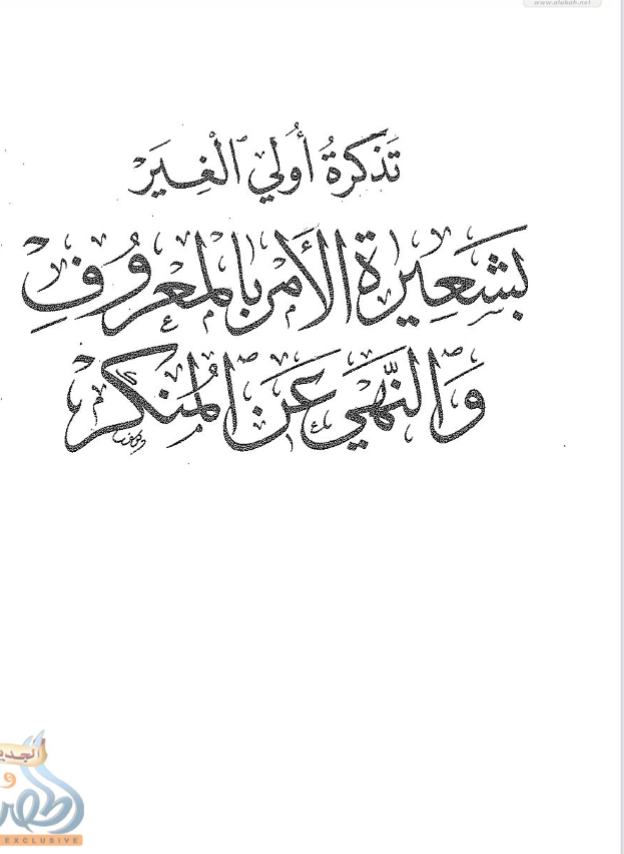 www.alukah.net
تذكرةُ أُولي الْغِيَرْ
بشَعِيرة الأَمْر بالمعْرُوفِ
وَالنَّهْيِ عَنِ المُنكَرْ
الجديد
و
EXCLUSIVE